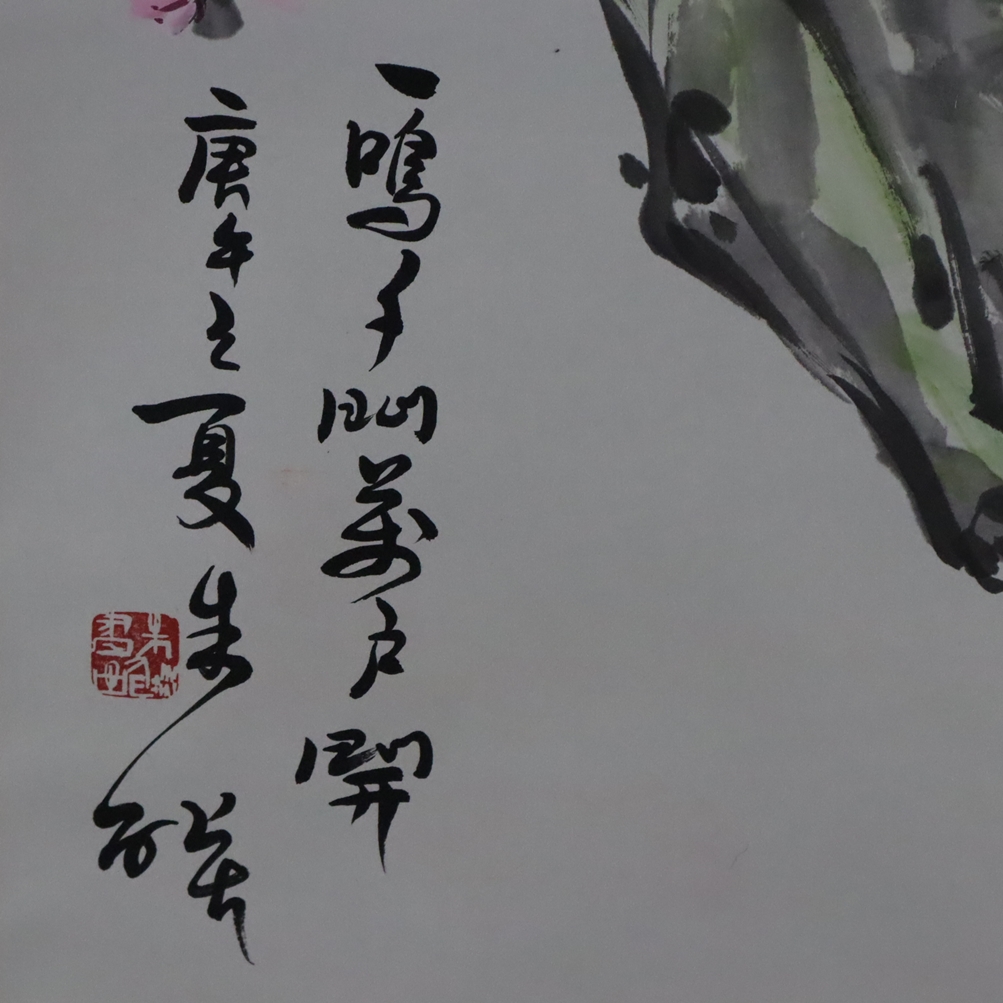 一鳴千門萬户開
庚午之夏朱